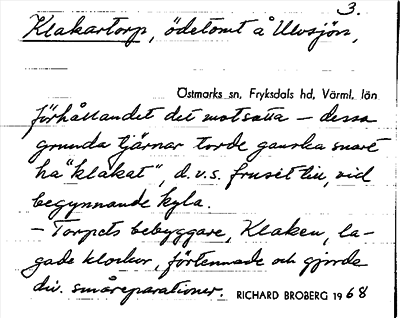 3.
Klakartorp, ödetomt å Ulvsjön,
Östmarks sn, Fryksdals hd, Värml. län
förhållandet det motsatta – dessa
grunda tjärnar torde ganska snart
ha "klakat", d.v.s. frusit till, vid
begynnande kyla.
– Torpets bebyggare, Klaken, la-
gade klockor, förtennade och gjorde
div. småreparationer. RICHARD BROBERG 1968